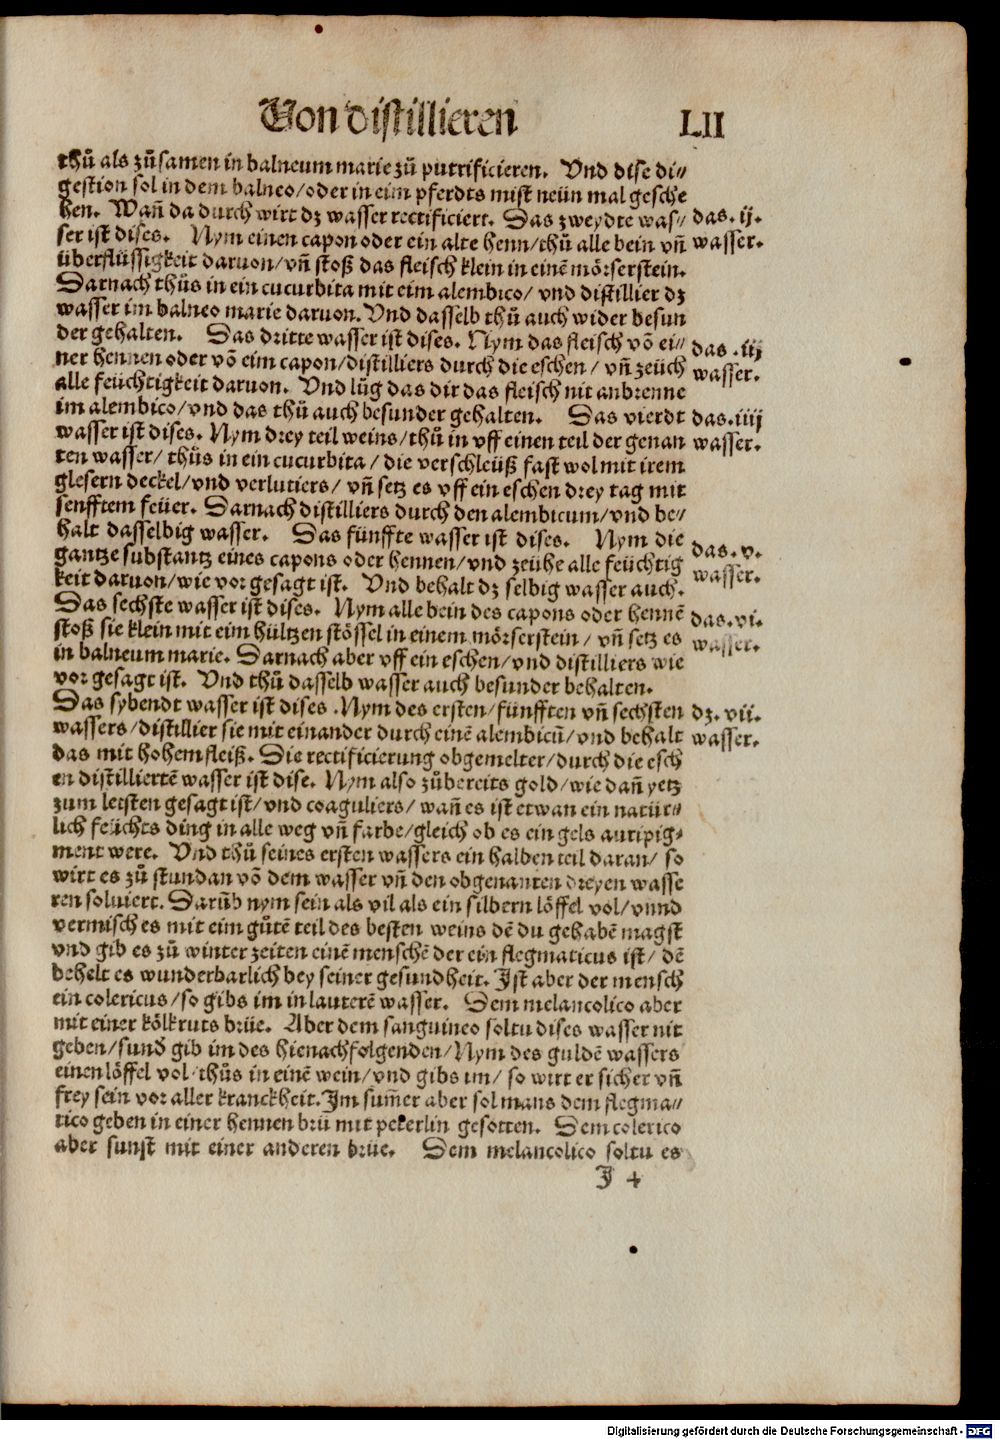 Von distillieren LII
thů als zůsamen in balneum marie zů putrificieren. Vnd dise di//
gestion sol in dem balneo/oder in eim pferdts mist neün mal gesche
hen. Wañ da durch wirt dz wasser rectificiert. Das zweydte was// das. ij.
ser ist dises. Nym einen capon oder ein alte henn/thů alle bein vñ wasser.
überflüssigkeit daruon/vñ stoß das fleisch klein in einē mörserstein.
Darnach thůs in ein cucurbita mit eim alembico/ vnd distillier dz
wasser im balneo marie daruon. Vnd dasselb thů auch wider besun
der gehalten. Das dritte wasser ist dises. Nym das fleisch vō ei// das .iij
ner hennen oder vō eim capon/distilliers durch die eschen/ vñ zeüch wasser.
alle feüchtigkeit daruon. Vnd lůg das dir das fleisch nit anbrenne
im alembico/vnd das thů auch besunder gehalten. Das vierdt das.iiij
wasser ist dises. Nym drey teil weins/thů in vff einen teil der genan wasser.
ten wasser/ thůs in ein cucurbita/ die verschleüß fast wol mit irem
glesern deckel/vnd verlutiers/ vñ setz es vff ein eschen drey tag mit
senfftem feüer. Darnach distilliers durch den alembicum/vnd be//
halt dasselbig wasser. Das fünffte wasser ist dises. Nym die das. v.
gantze substantz eines capons oder hennen/vnd zeühe alle feüchtig wasser.
keit daruon/wie vor gesagt ist. Vnd behalt dz selbig wasser auch.
Das sechste wasser ist dises. Nym alle bein des capons oder hennē das.vi.
stoß sie klein mit eim hültzen stössel in einem mörserstein/ vñ setz es wasser.
in balneum marie. Darnach aber vff ein eschen/vnd distilliers wie
vor gesagt ist. Vnd thů dasselb wasser auch besunder behalten.
Das sybendt wasser ist dises .Nym des ersten/fünfften vñ sechsten dz. vii.
wassers/distillier sie mit einander durch einē alembicū/vnd behalt wasser.
das mit hohem fleiß. Die rectificierung obgemelter/durch die esch
en distilliertē wasser ist dise. Nym also zůbereits gold/wie dañ yetz
zum letsten gesagt ist/vnd coaguliers/wañ es ist etwan ein natür//
lich feüchts ding in alle weg vñ farbe/gleich ob es ein gels auripig-
ment were. Vnd thů seines ersten wassers ein halben teil daran/ so
wirt es zů stundan vō dem wasser vñ den obgenanten dreyen wasse
ren soluiert. Darūb nym sein als vil als ein silbern löffel vol/vnnd
vermisch es mit eim gůtē teil des besten weins dē du gehabē magst
vnd gib es zů winter zeiten einē menschē der ein flegmaticus ist/ dē
behelt es wunderbarlich bey seiner gesundheit. Ist aber der mensch
ein colericus/so gibs im in lauterē wasser. Dem melancolico aber
mit einer kölkruts brüe. Aber dem sanguineo soltu dises wasser nit
geben/sunď gib im des hienachfolgenden/Nym des guldē wassers
einen löffel vol/thůs in einē wein/vnd gibs im/ so wirt er sicher vñ
frey sein vor aller kranckheit. Im sum̄er aber sol mans dem flegma//
tico geben in einer hennen brü mit peterlin gesotten. Dem colerico
aber sunst mit einer anderen brüe. Dem melancolico soltu es
J 4
Digitalisierung gefördert durch die Deutsche Forschungsgemeinschaft - DFG